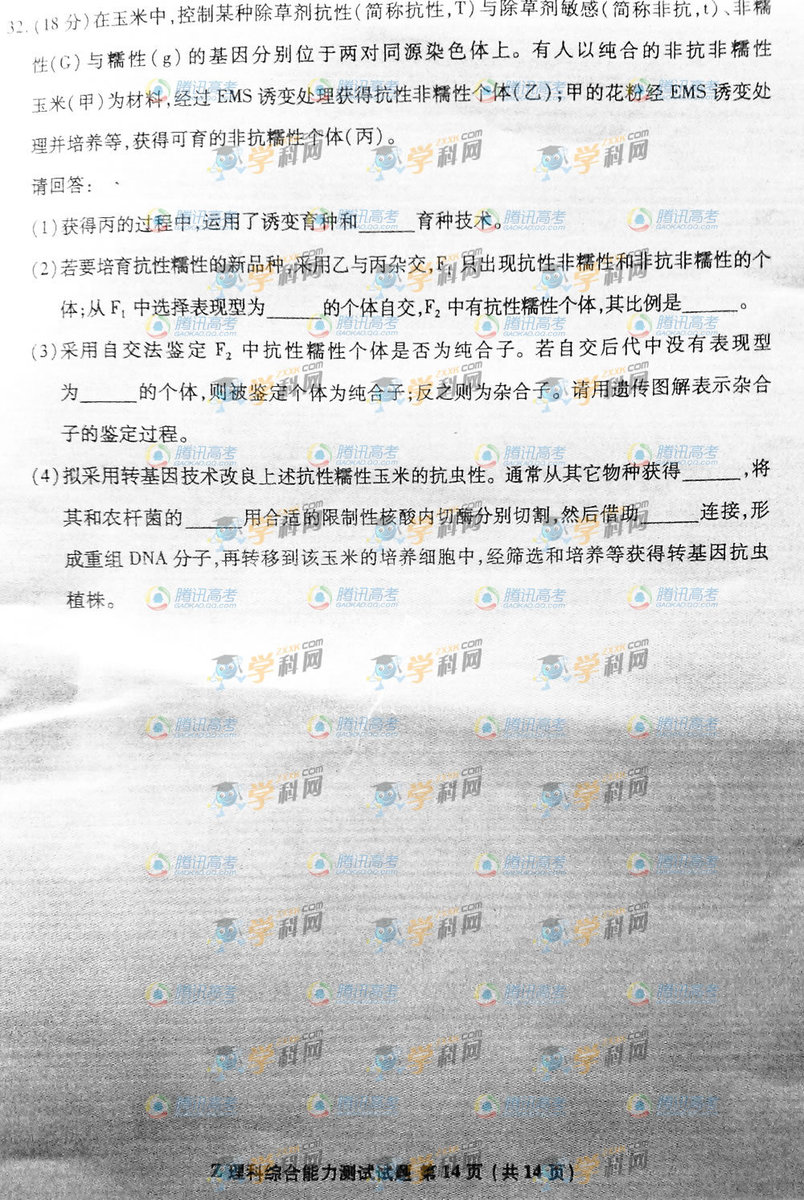 32.(18分)在玉米中,控制某种除草剂抗性(简称抗性,T)与除草剂敏感(简称非抗,t)、非糯
性(G)与糯性(g)的基因分别位于两对同源染色体上。有人以纯合的非抗非糯性
玉米(甲)为材料,经过EMS诱变处理获得抗性非糯性个体(乙);甲的花粉经EMS诱变处
理并培养等,获得可育的非抗糯性个体(丙)。
请回答:
(1)获得丙的过程中,运用了诱变育种和______育种技术。
(2)若要培育抗性糯性的新品种,采用乙与丙杂交,F₁只出现抗性非糯性和非抗非糯性的个
体;从F₁中选择表现型为______的个体自交,F₂中有抗性糯性个体,其比例是______。
(3)采用自交法鉴定F₂中抗性糯性个体是否为纯合子。若自交后代中没有表现型
为______的个体,则被鉴定个体为纯合子;反之则为杂合子。请用遗传图解表示杂合
子的鉴定过程。
(4)拟采用转基因技术改良上述抗性糯性玉米的抗虫性。通常从其它物种获得______,将
其和农杆菌的______用合适的限制性核酸内切酶分别切割,然后借助______连接,形
成重组DNA分子,再转移到该玉米的培养细胞中,经筛选和培养等获得转基因抗虫
植株。
Z理科综合能力测试试题 第14页(共14页)
腾讯高考
GAOKAO.QQ.COM
学科网
ZXXK.com